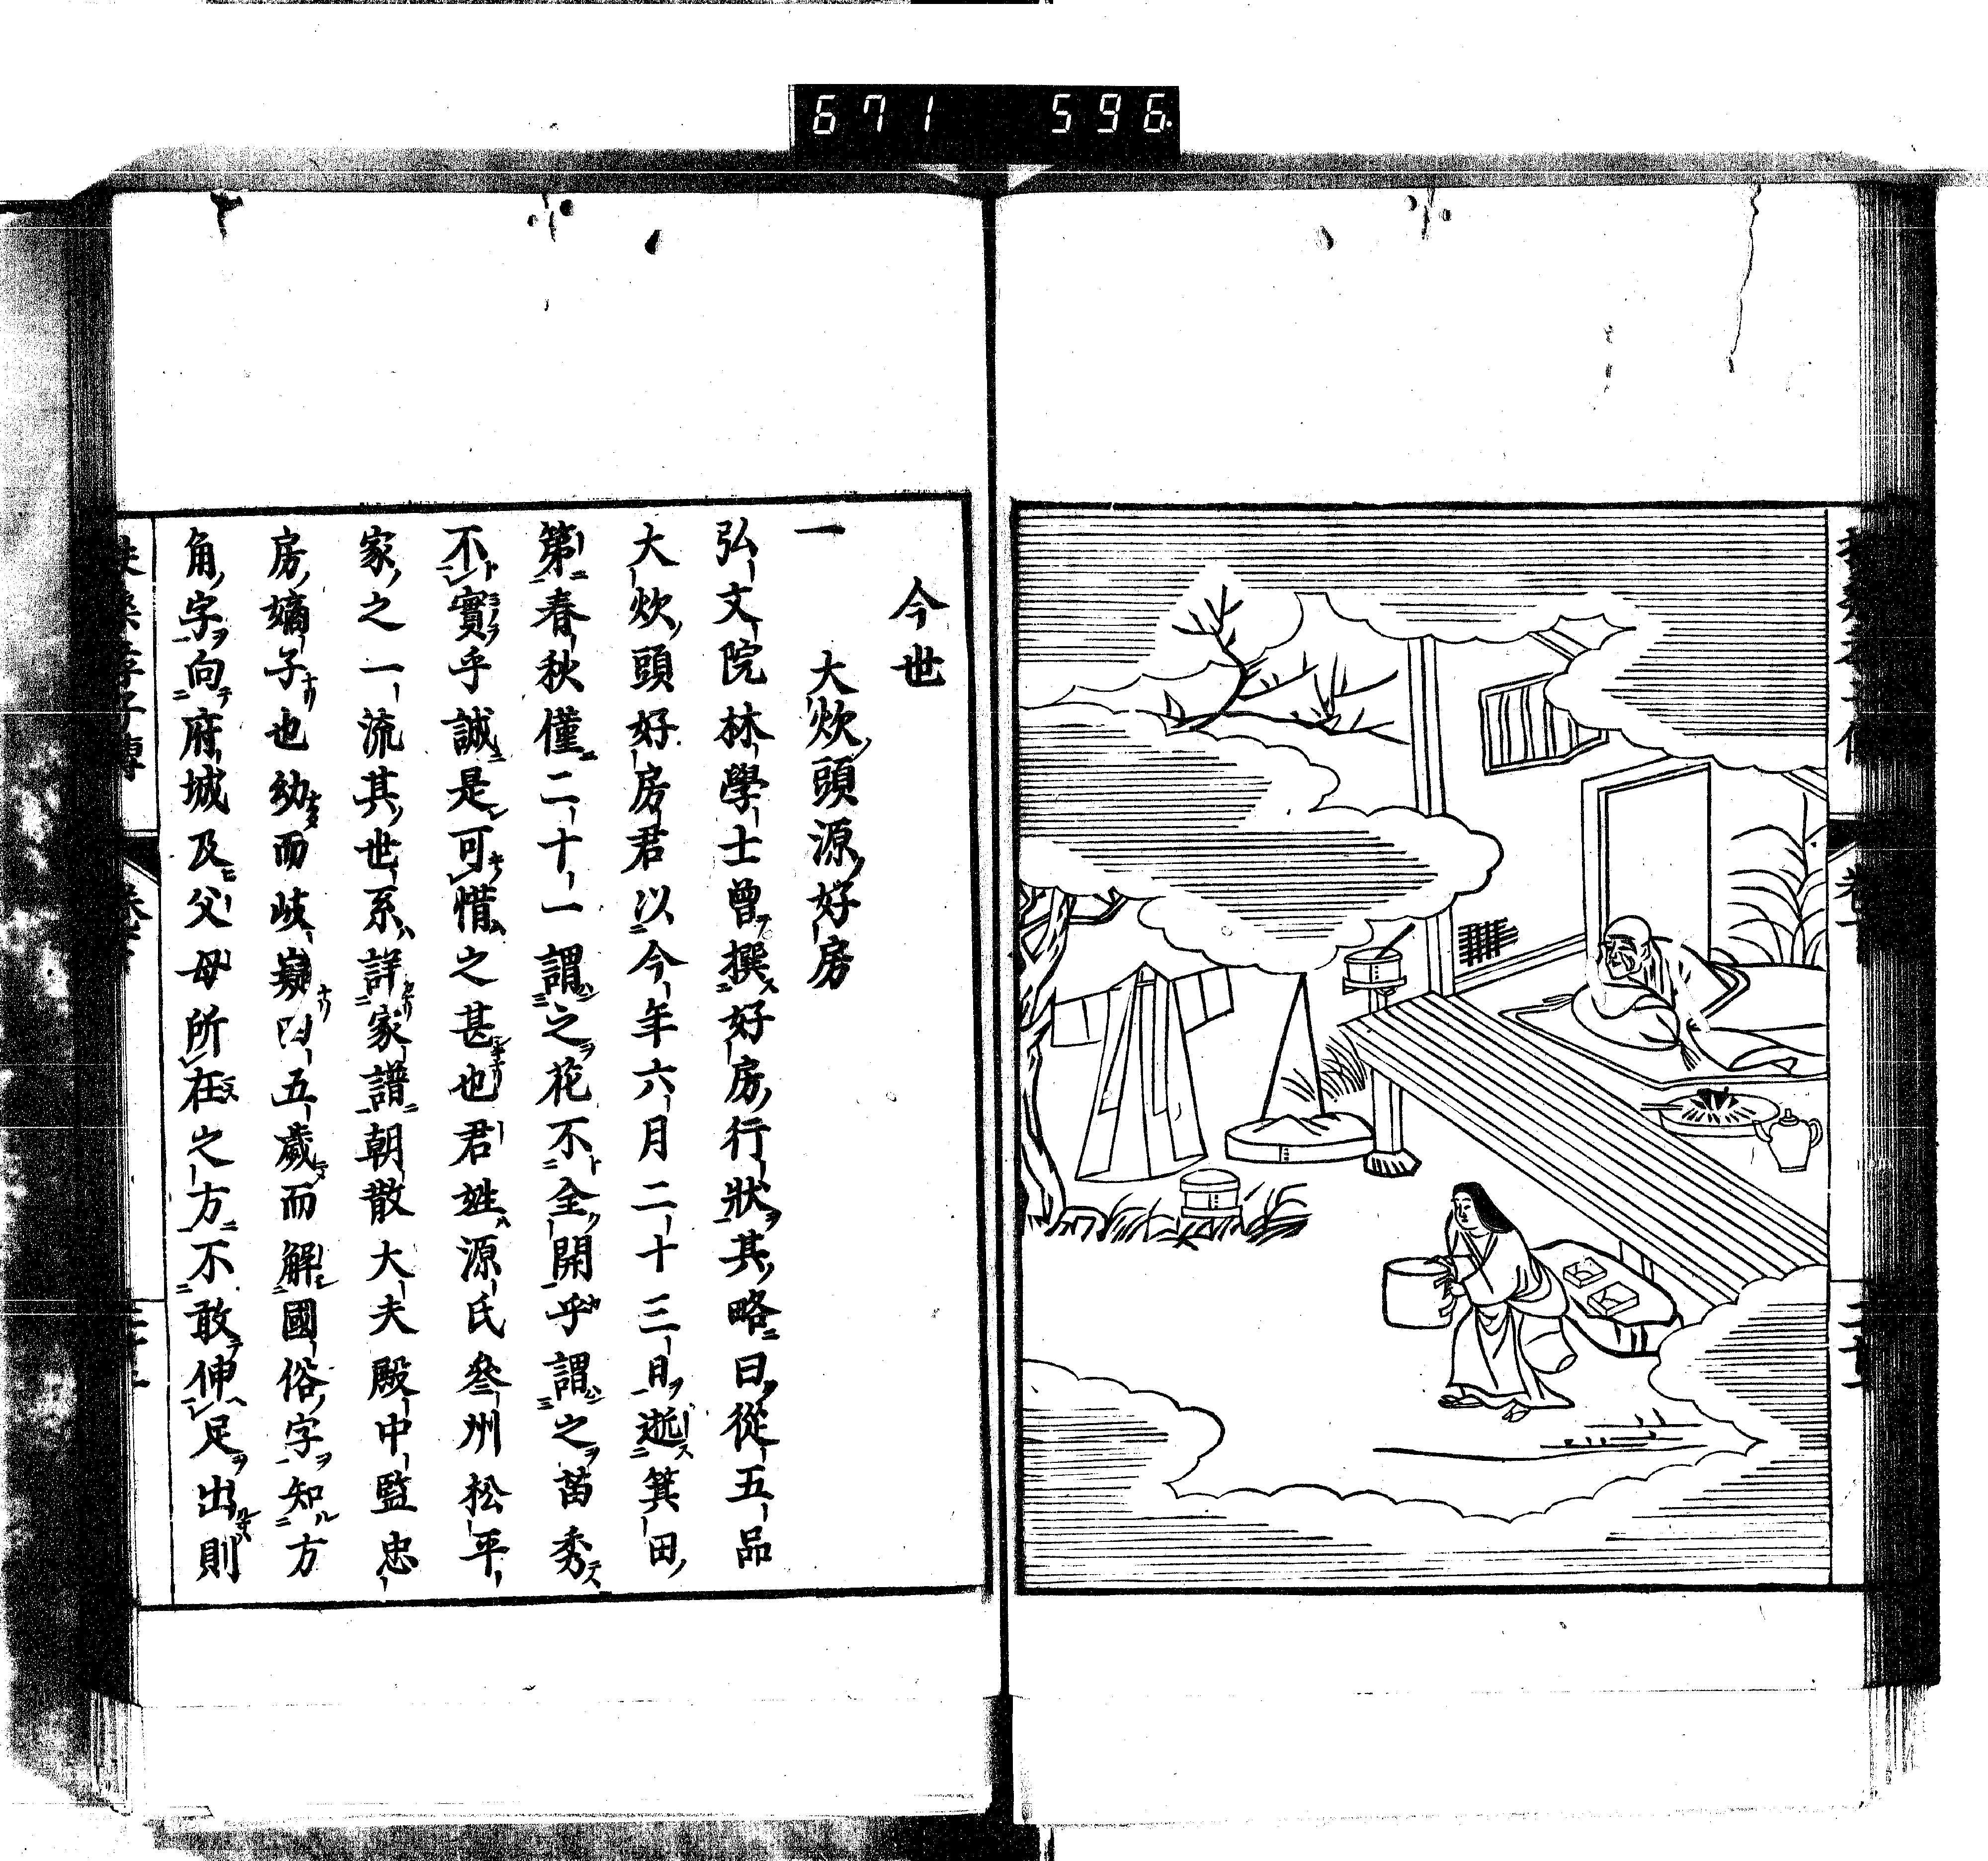 671 596
今世
一 大炊頭源好房
弘文院林學士曾撰好房行狀其略曰從五品
大炊頭好房君以今年六月二十三日逝箕田
第春秋僅二十一謂之花不全開乎謂之苗秀
不實乎誠是可惜之甚也君姓源氏叄州松平
家之一流其世系詳家譜朝散大夫殿中監忠
房嫡子也幼而岐嶷四五歲而解國俗字知方
角字向府城及父母所在之方不敢伸足出則